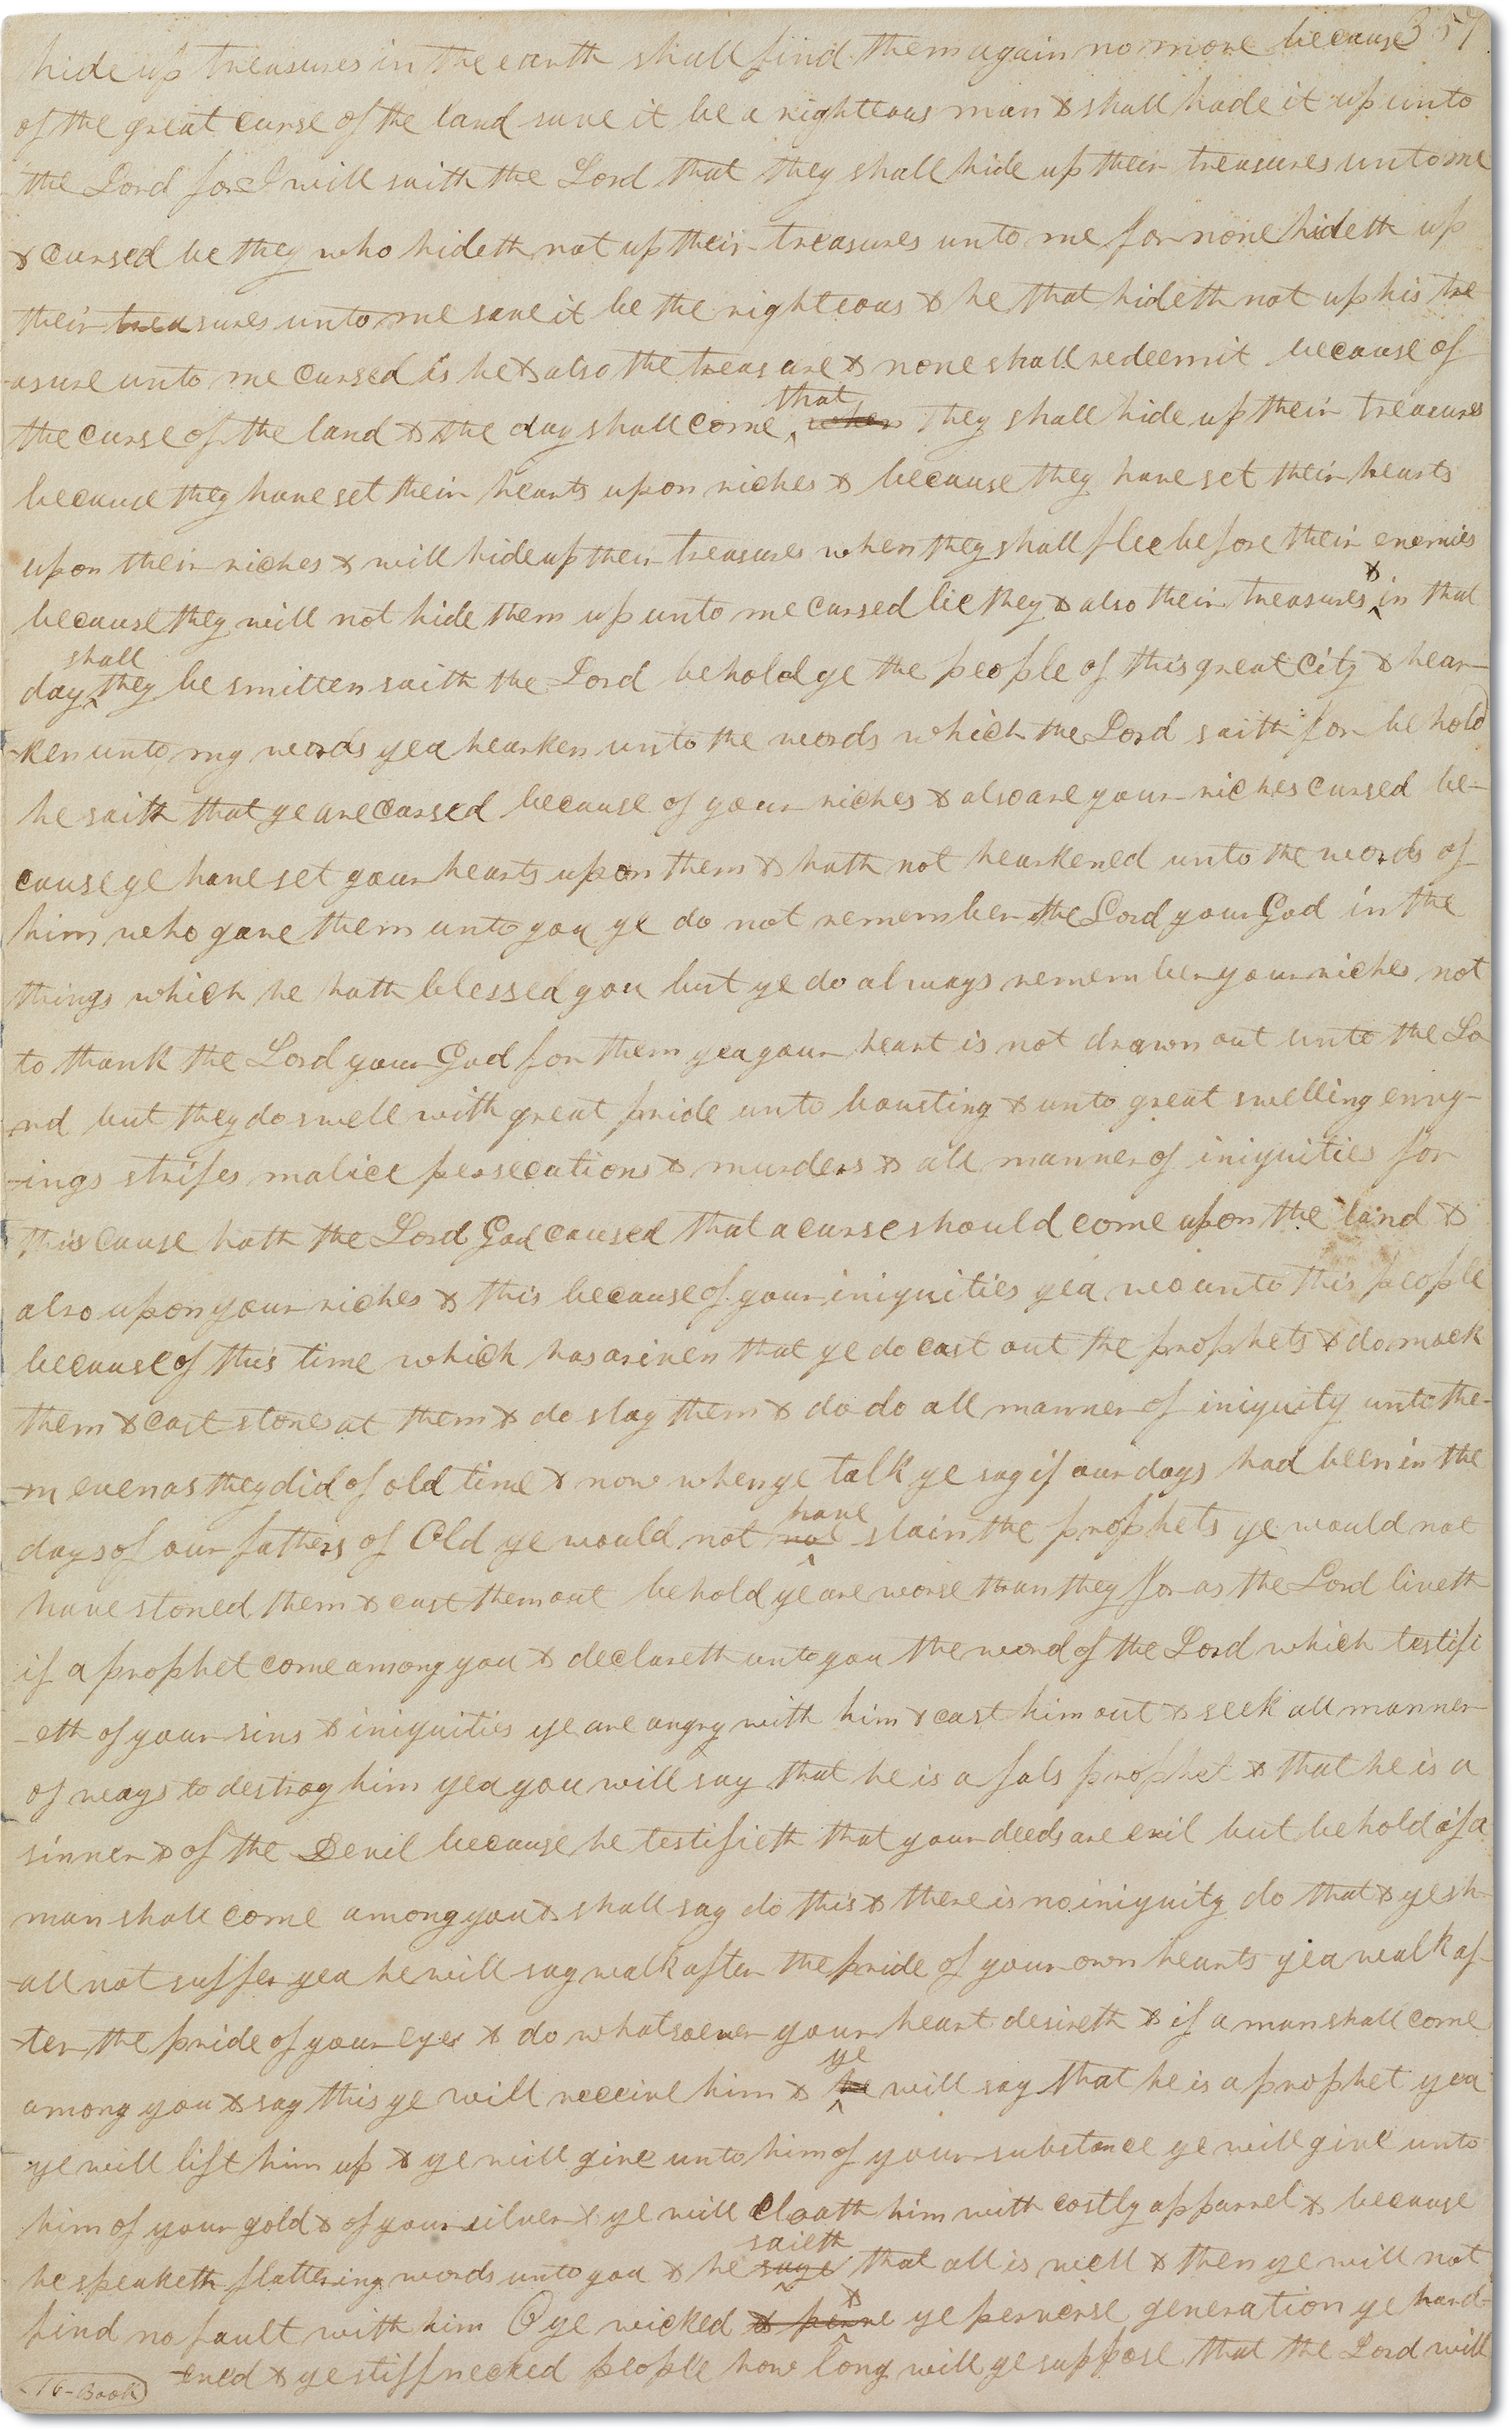 357
hide up treasures in the earth shall find them again no more because
of the great curse of the land save it be a righteous man & shall hade it up unto
the Lord for I will saith the Lord that they shall hide up their treasures unto me
& cursed be they who hideth not up their treasures unto me for none hideth up
their treasures unto me save it be the righteous & he that hideth not up his tre
-asure unto me cursed is he & also the treasure & none shall redeem it because of
that
the curse of the land & the day shall come when they shall hide up their treasures
because they have set their hearts upon riches & because they have set their hearts
upon their riches & will hide up their treasures when they shall flee before their enemies
&
because they will not hide them up unto me cursed be they & also their treasures in that
shall
day they be smitten saith the Lord behold ye the people of this great City & hear-
-ken unto my words yea hearken unto the words which the Lord saith for behold
he saith that ye are cursed because of your riches & also are your riches cursed be-
cause ye have set your hearts upon them & hath not hearkened unto the words of
him who gave them unto you ye do not remember the Lord your God in the
things which he hath blessed you but ye do always remember your riches not
to thank the Lord your God for them yea your heart is not drawn out unto the Lo
-rd but they do swell with great pride unto boasting & unto great swelling envy-
-ings strifes malice persecutions & murders & all manner of iniquities for
this cause hath the Lord God caused that a curse should come upon the land &
also upon your riches & this because of your iniquities yea wo unto this people
because of this time which has ariven that ye do cast out the prophets & do mock
them & cast stones at them & do slay them & do do all manner of iniquity unto the-
-m even as they did of old time & now when ye talk ye say if our days had been in the
have
days of our fathers of Old ye would not not slain the prophets ye would not
have stoned them & cast them out behold ye are worse than they for as the Lord liveth
if a prophet come among you & declareth unto you the word of the Lord which testifi
-eth of your sins & iniquities ye are angry with him & cast him out & seek all manner
of ways to destroy him yea you will say that he is a fals prophet & that he is a
sinner & of the Devil because he testifieth that your deeds are evil but behold if a
man shall come among you & shall say do this & there is no iniquity do that & ye sh-
-all not suffer yea he will say walk after the pride of your own hearts yea walk af-
-ter the pride of your eyes & do whatsoever your heart desireth & if a man shall come
ye
among you & say this ye will receive him & he will say that he is a prophet yea
ye will lift him up & ye will give unto him of your substance ye will give unto
him of your gold & of your silver & ye will cloath him with costly apparrel & because
saieth
he speaketh flattering words unto you & he says that all is well & then ye will not
&
find no fault with him O ye wicked & perve ye perverse generation ye hard-
-ened & ye stiffnecked people how long will ye suppose that the Lord will
16-Book